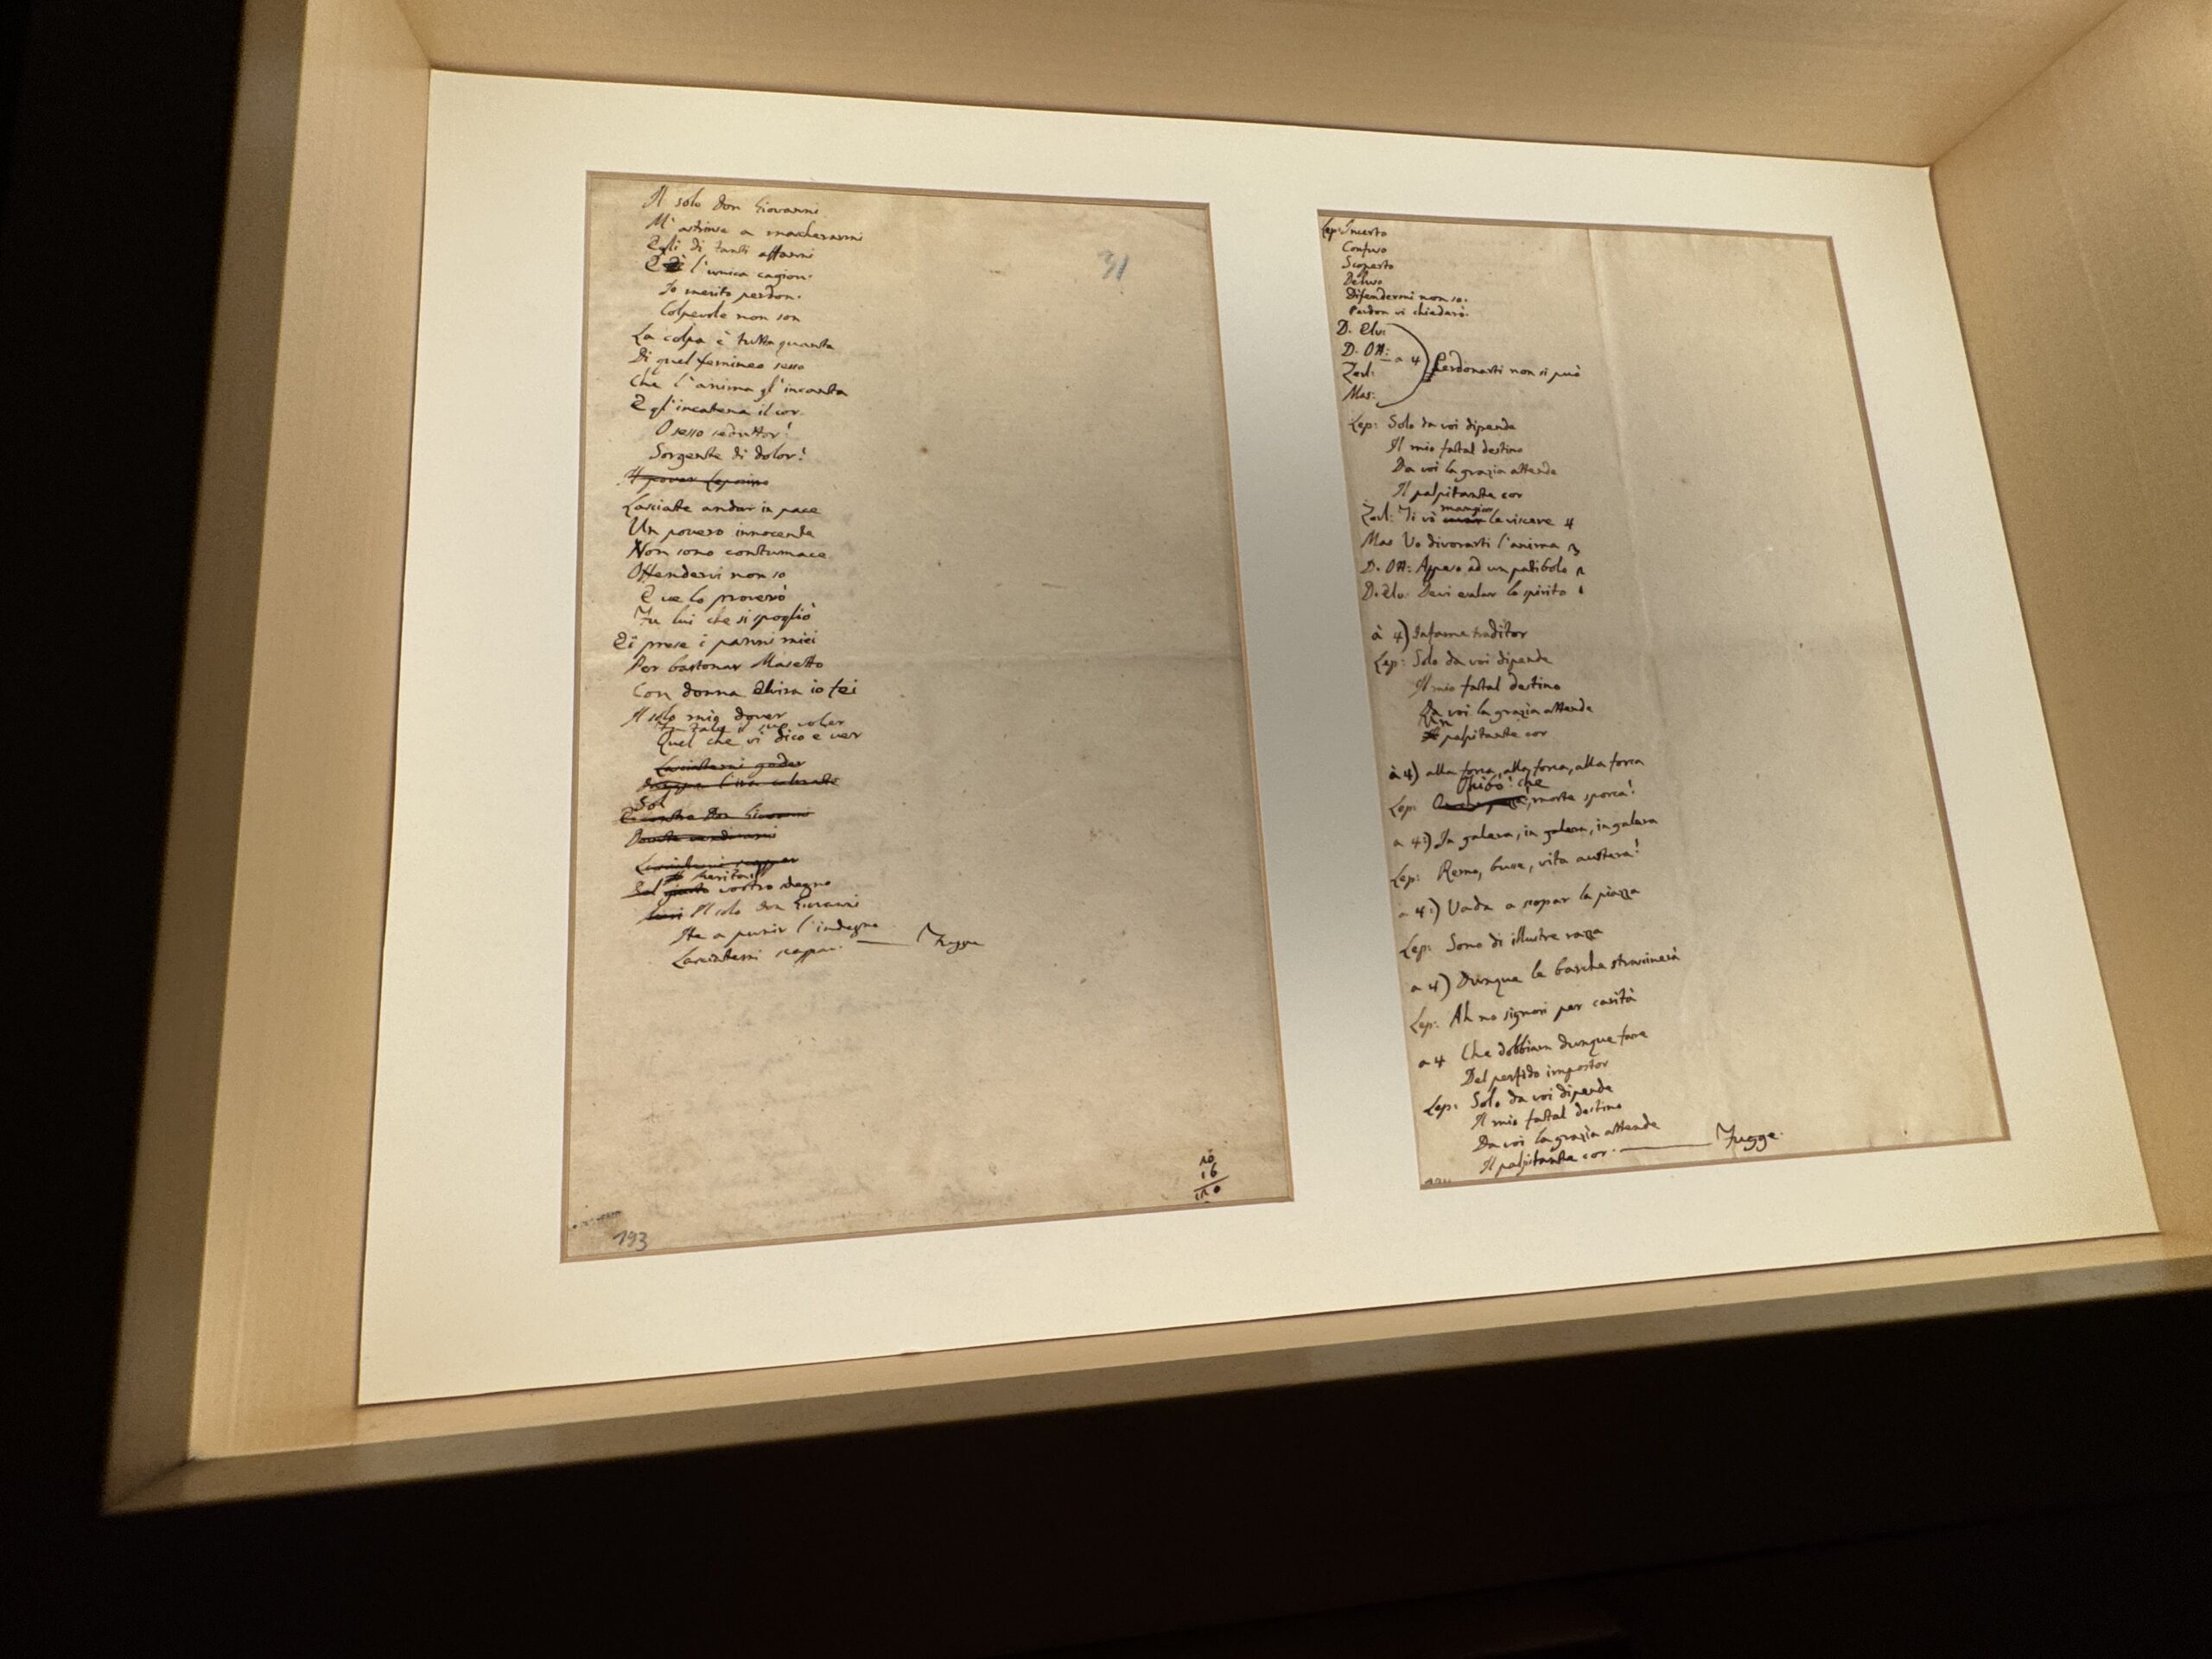 Il solo don Giovanni
M'astrinse a mascherarmi
Egli di tanti affanni
E l'unica cagion:
Io merito perdon.
Colpevole non son
La colpa è tutta quanta
Di quel femineo sesso
Che l'anima gl'incanta
E gl'incatena il cor.
O sesso seduttor!
Sorgente di dolor!
Il pover Leporino
Lasciate andar in pace
Un povero innocente
Non sono contumace
Offendervi non so
E ve lo proverò
Fu lui che si spogliò
Ei prese i panni miei
Per bastonar Masetto
Con donna Elvira io fei
Il solo mio dover
Fu tale il suo voler
Quel che vi dico e ver
Lasciatemi
Sol
Don Giovanni
Lasciatemi scappar
Sol vostro sdegno
Il solo don Giovanni
Ite a punir l'indegno
Lasciatemi scappar. Fugge
31
10
16
193
Lep: Incerto
Confuso
Scoperto
Deluso
Difendermi non so.
Perdon vi chiederò.
D. Elv:
D. Ott: a 4) Perdonarti non si può
Zerl:
Mas:
Lep: Solo da voi dipende
Il mio fatal destino
Da voi la grazia attende
Il palpitante cor
mangiar
Zerl: Ti vò le viscere 4
Mas Vo divorarti l'anima 3
D. Ott: Appeso ad un patibolo 2
D. Elv: Devi exalar lo spirito 1
à 4) Infame traditor
Lep: Solo da voi dipende
Il mio fatal destino
Da voi la grazia attende
Un
palpitante cor
à 4) alla forca, alla forca, alla forca
Ohibò! che
Lep: morte sporca!
a 4:) In galera, in galera, in galera
Lep: Remo, buse, vita austera!
a 4:) Vada a scopar la piazza
Lep: Sono di illustre razza
a 4) Dunque le barche strascinerà
Lep: Ah no signori per carità
a 4 Che dobbiam dunque fare
Del perfido impostor
Lep: Solo da voi dipende
Il mio fatal destino
Da voi la grazia attende
Il palpitante cor. Fugge.